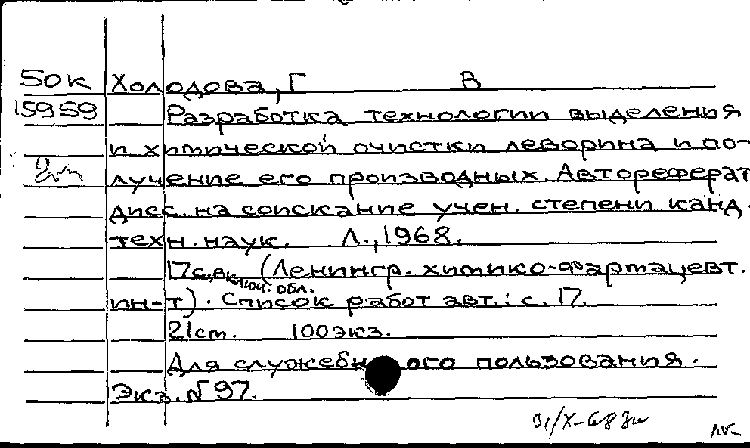 50к Холодова, Г В
15959 Разработка технологии выделения
и химической очистки леворина и по-
лучение его производных. Автореферат
дисс. на соискание учен. степени канд.
техн. наук. Л., 1968.
17с. включ. обл. (Ленингр. химико-фармацевт.
ин-т). Список работ авт.: с. 17.
21см. 100экз.
Для служебного пользования.
Экз. №97.